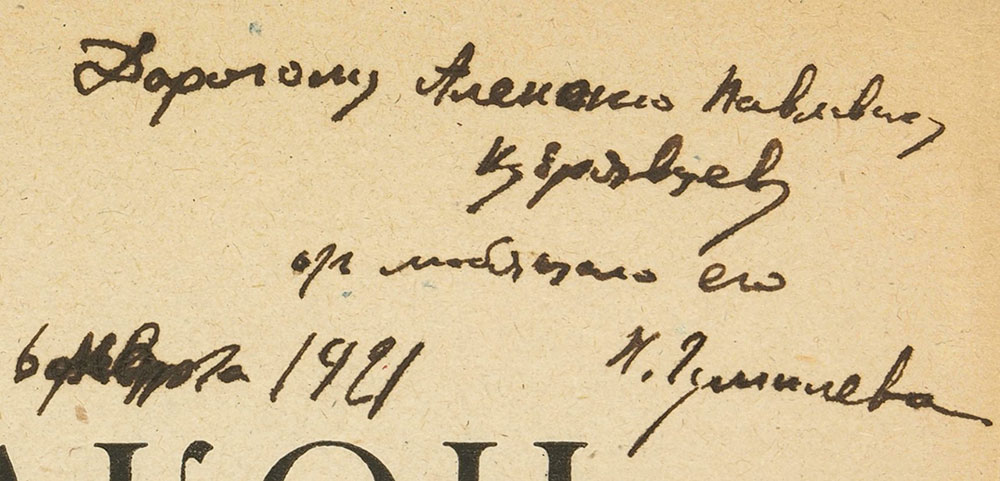 Дорогому Алексею Павловичу
Кудрявцеву
от любящаго его
6 1921 Н. Гумилева
АКОН